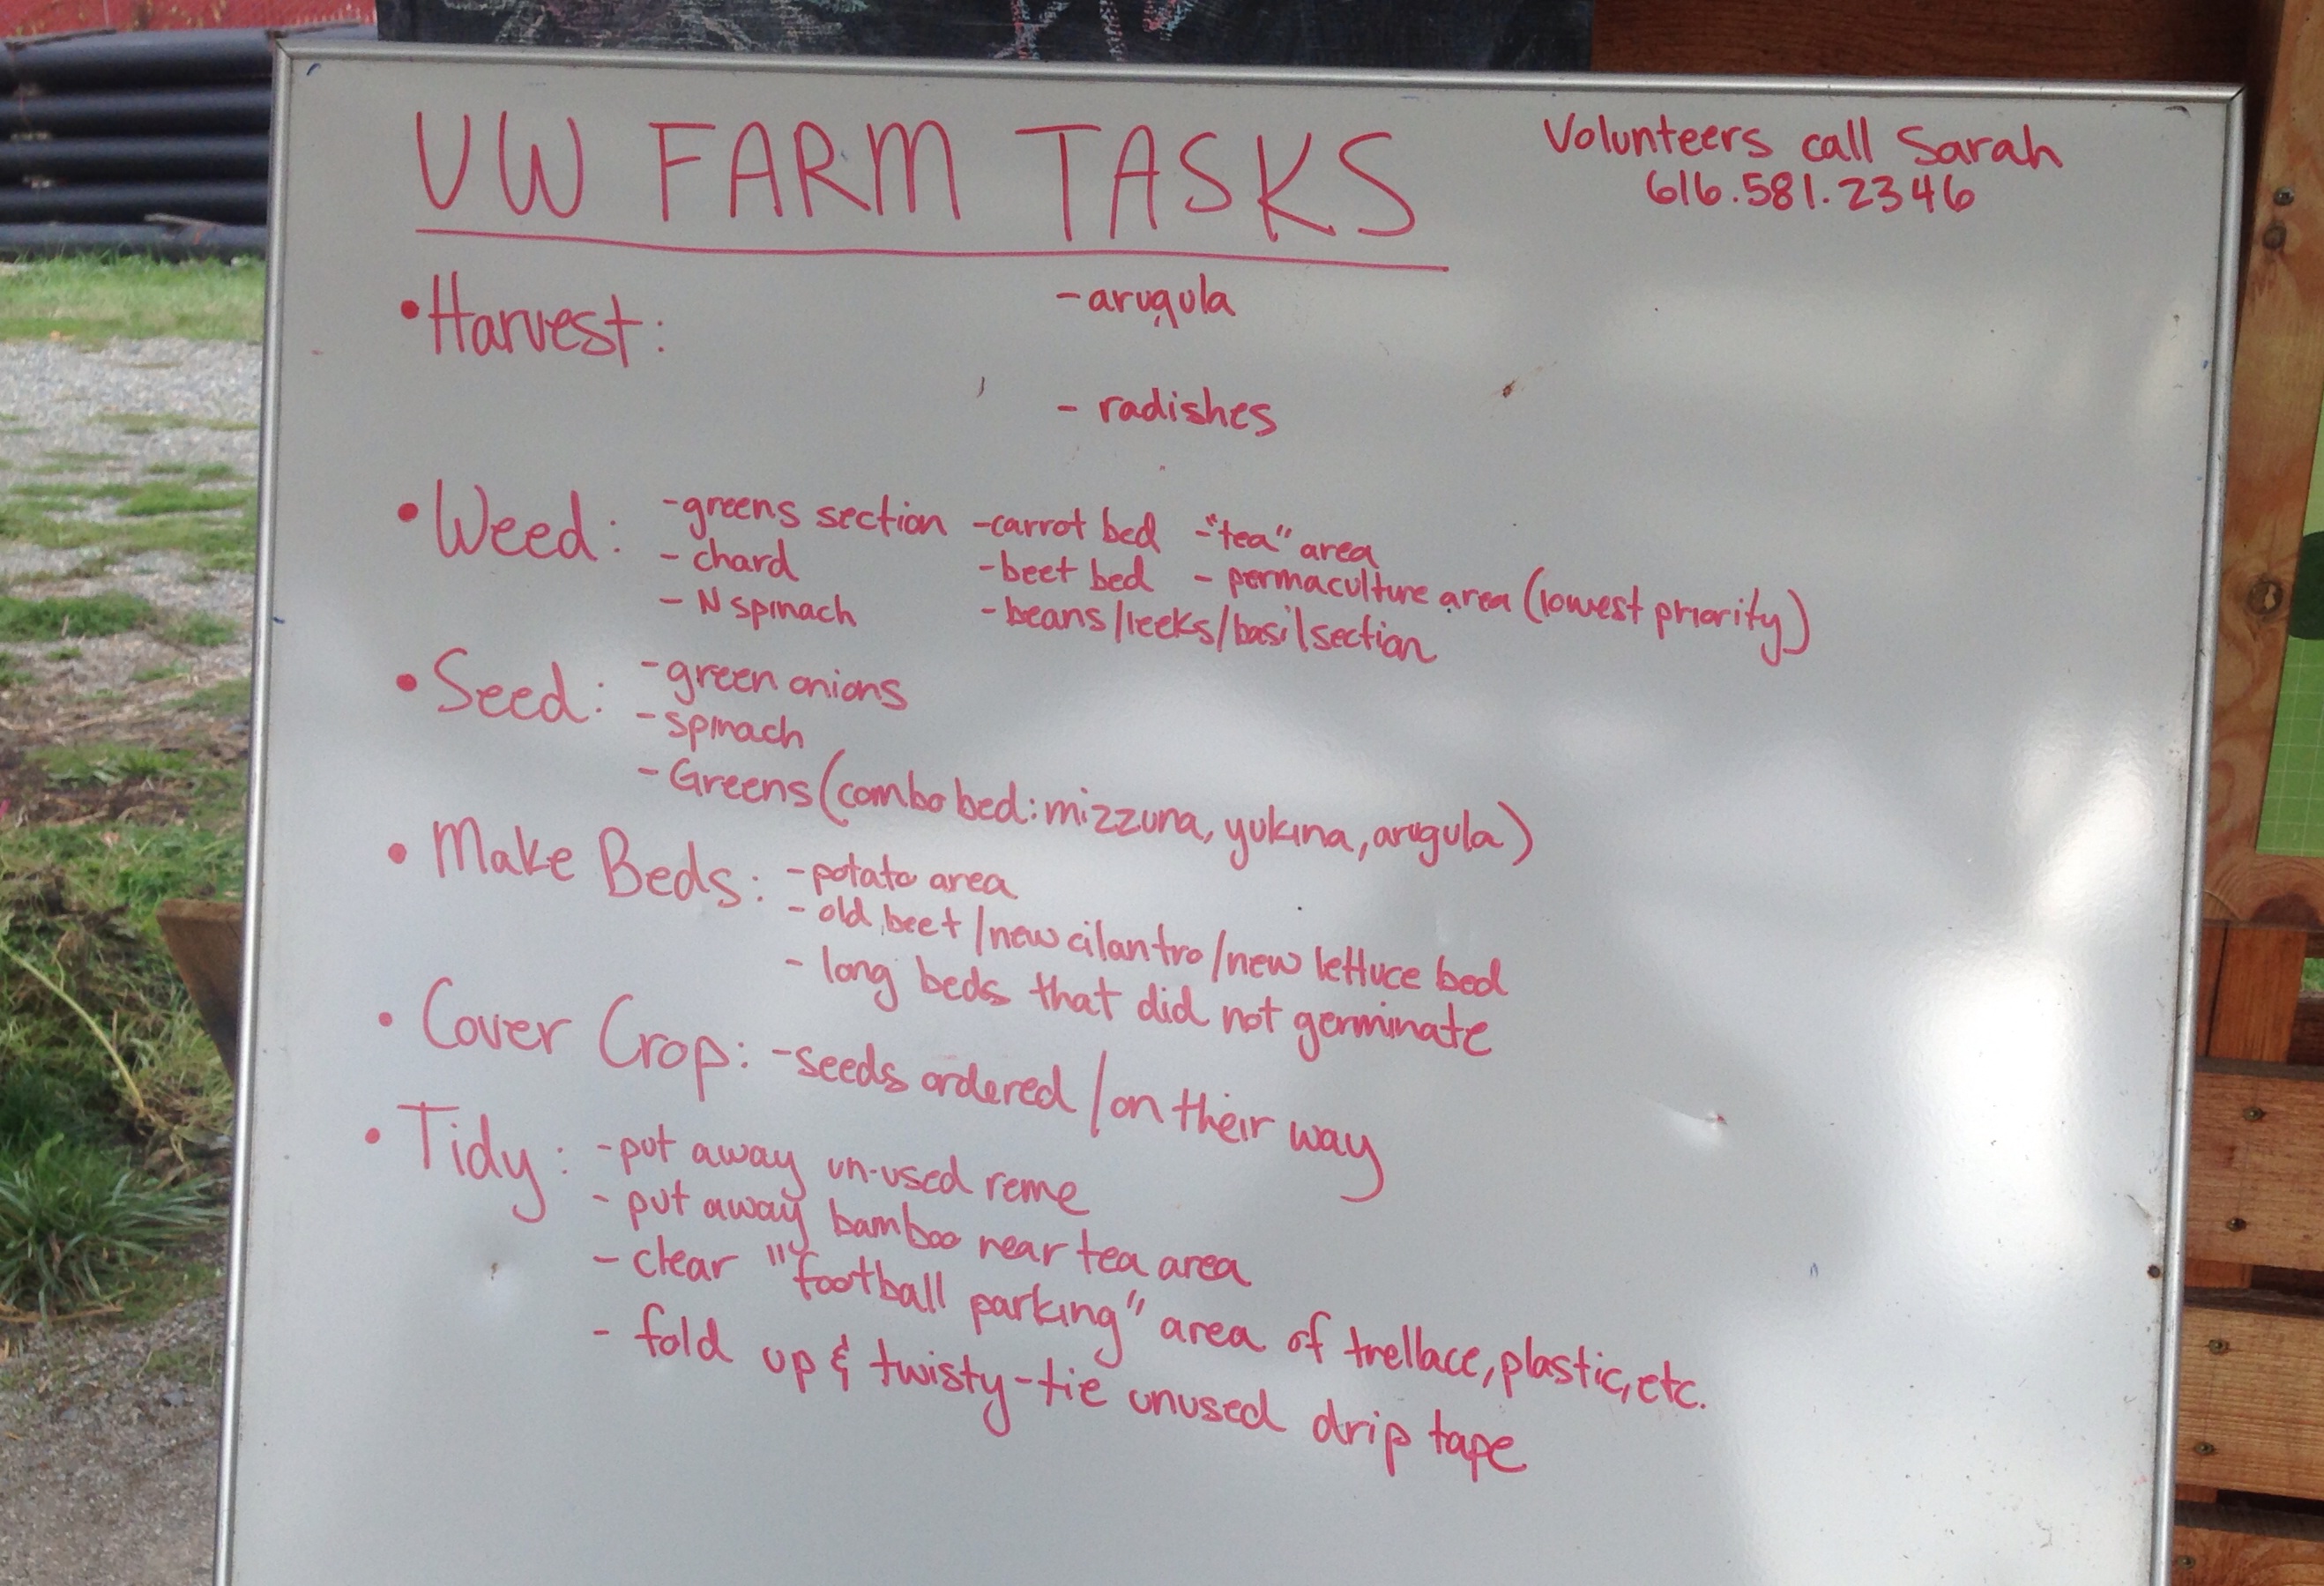 UW FARM TASKS
Volunteers call Sarah
616.581.2346
• Harvest:
- arugula
- radishes
• Weed: - greens section - carrot bed - "tea" area
- chard - beet bed - permaculture area (lowest priority)
- N spinach - beans/leeks/basil section
• Seed: - green onions
- spinach
- Greens (combo bed: mizzuna, yukina, arugula)
• Make Beds: - potato area
- old beet/new cilantro/new lettuce bed
- long beds that did not germinate
• Cover Crop: - seeds ordered/on their way
• Tidy: - put away un-used reme
- put away bamboo near tea area
- clear "football parking" area of trellace, plastic, etc.
- fold up & twisty-tie unused drip tape